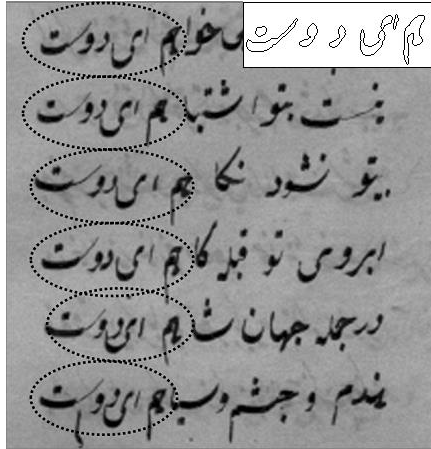 هم ای دوست
خواهم ای دوست
نیست بتو اشتباهم ای دوست
بیتو نشود نکاهم ای دوست
ابروی تو قبله کاهم ای دوست
در جمله جهان شاهم ای دوست
و چشم ای دوست